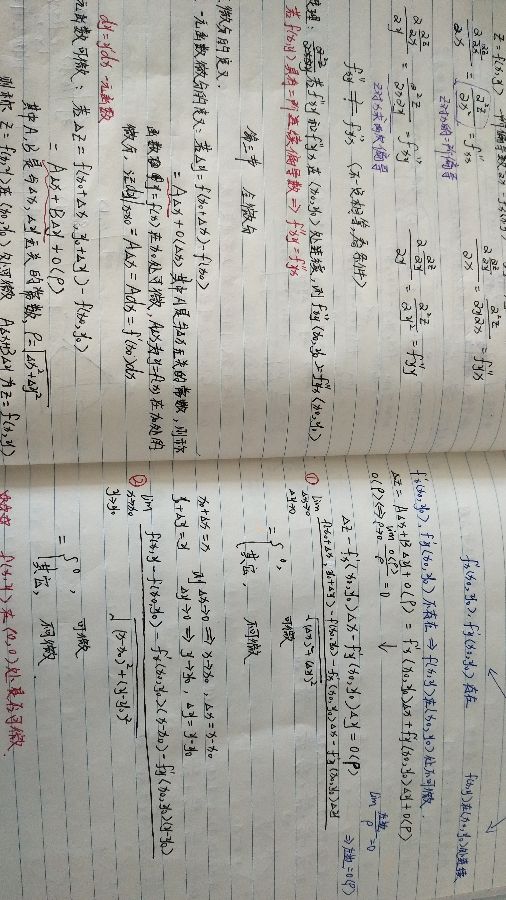 Z = f(x,y)
∂/∂x ∂z/∂x = ∂²z/∂x² = f''xx
∂/∂y ∂z/∂x = ∂²z/∂x∂y = f''xy
∂/∂x ∂z/∂y = ∂²z/∂y∂x = f''yx
∂/∂y ∂z/∂y = ∂²z/∂y² = f''yy
f''xy ≠ f''yx (不一定相等,看条件)
若f''xy和f''yx在(x0,y0)处连续,则f''xy(x0,y0)=f''yx(x0,y0)
若f(x,y)具有二阶连续偏导数 ⇒ f''xy=f''yx
第三节 全微分
微分的定义
一元函数微分的定义:若Δy=f(x0+Δx)-f(x0)
=AΔx+o(Δx) 其中A是与Δx无关的常数,则称
函数y=f(x)在x0处可微,AΔx为y=f(x)在x0处的
微分,记dy|x=x0=AΔx=Adx=f'(x0)dx
dy=y'dx 一元函数
元函数可微:若ΔZ=f(x0+Δx,y0+Δy)-f(x0,y0)
=AΔx+BΔy+o(ρ)
其中A,B是与Δx,Δy无关的常数,ρ=√Δx²+Δy²
则称Z=f(x,y)在(x0,y0)处可微 AΔx+BΔy为Z=f(x,y)
f'x(x0,y0),f'y(x0,y0)存在
f(x,y)在(x0,y0)处连续
f'x(x0,y0),f'y(x0,y0)不存在 ⇒ f(x,y)在(x0,y0)处不可微
ΔZ=AΔx+BΔy+o(ρ)=f'x(x0,y0)Δx+f'y(x0,y0)Δy+o(ρ)
o(ρ)⇔ lim ρ→0 o(ρ)/ρ=0
ΔZ-f'x(x0,y0)Δx-f'y(x0,y0)Δy=o(ρ)
① lim Δx→0 Δy→0 f(x0+Δx,y0+Δy)-f(x0,y0)-f'x(x0,y0)Δx-f'y(x0,y0)Δy / √(Δx)²+(Δy)²
={0, 可微
其它, 不可微
x0+Δx=x 则Δx→0 ⇒ x→x0, Δx=x-x0
y0+Δy=y Δy→0 ⇒ y→y0, Δy=y-y0
② lim x→x0 y→y0 f(x,y)-f(x0,y0)-f'x(x0,y0)(x-x0)-f'y(x0,y0)(y-y0) / √(x-x0)²+(y-y0)²
={0, 可微
其它, 不可微
f(x,y)在(0,0)处是否可微